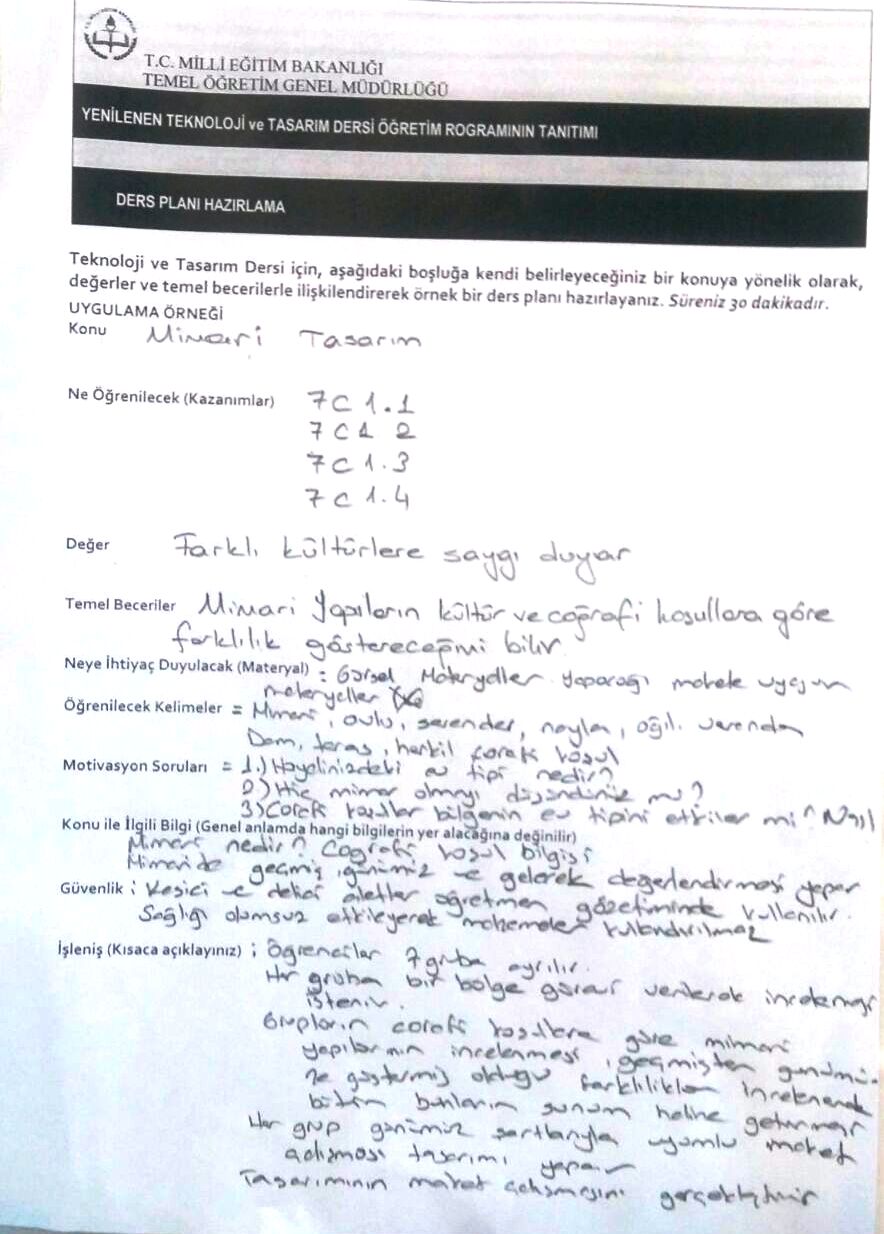 T.C. MİLLİ EĞİTİM BAKANLIĞI
TEMEL ÖĞRETİM GENEL MÜDÜRLÜĞÜ
YENİLENEN TEKNOLOJİ ve TASARIM DERSİ ÖĞRETİM ROGRAMININ TANITIMI
DERS PLANI HAZIRLAMA
Teknoloji ve Tasarım Dersi için, aşağıdaki boşluğa kendi belirleyeceğiniz bir konuya yönelik olarak,
değerler ve temel becerilerle ilişkilendirerek örnek bir ders planı hazırlayanız. Süreniz 30 dakikadır.
UYGULAMA ÖRNEĞİ
Konu Mimari Tasarım
Ne Öğrenilecek (Kazanımlar) 7C 1.1
7C1 2
7C 1.3
7C 1.4
Değer Farklı kültürlere saygı duyar
Temel Beceriler Mimari Yapıların kültür ve coğrafi koşullara göre
farklılık göstereceğini bilir
Neye İhtiyaç Duyulacak (Materyal) : Görsel Materyaller yapacağı makete uygun
materyeller
Öğrenilecek Kelimeler = Mimari, avlu, serender, nayla, ağıl, veranda
Dam, teras,
Motivasyon Soruları = 1.) Hayalinizdeki ev tipi nedir?
2) Hiç mimar olmayı düşündünüz mü?
3) bölgenin ev tipini etkiler mi? Nasıl
Konu ile İlgili Bilgi (Genel anlamda hangi bilgilerin yer alacağına değinilir)
Mimari nedir? Coğrafi koşul bilgisi
Mimaride geçmiş, günümüz ve gelecek değerlendirmesi yapar
Güvenlik : Kesici ve delici aletler öğretmen gözetiminde kullanılır.
Sağlığı olumsuz etkileyecek
İşleniş (Kısaca açıklayınız) ; Öğrenciler 7 gruba ayrılır.
Her gruba bir bölge görevi verilerek incelemesi
istenir.
Grupların göre mimari
yapılarının incelenmesi, geçmişten günümü-
ze göstermiş olduğu farklılıkları incelenerek
bütün bunların sunum haline getirmesi
Her grup günümüz şartlarıyla uyumlu maket
çalışması tasarımı yapar
Tasarımının maket çalışmasını gerçekleştirir